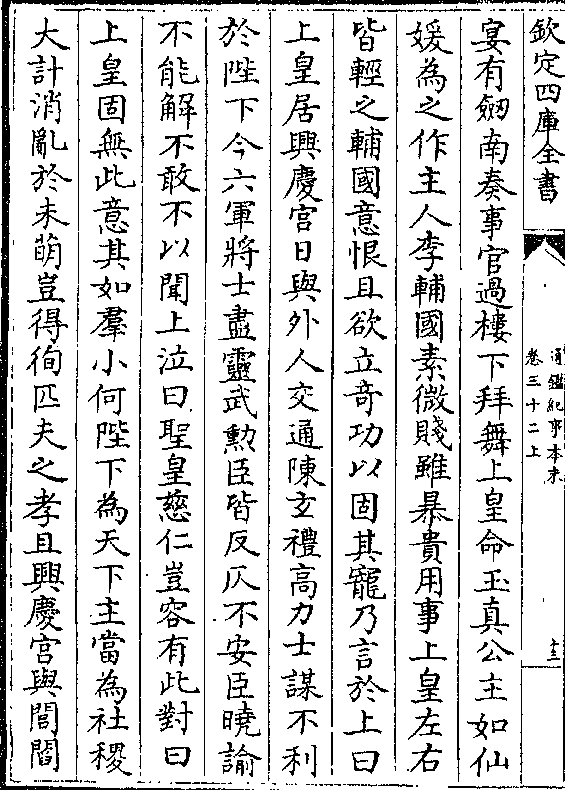 欽定四庫全書
通鑑紀事本末
卷三十二上
十三
宴有劒南奏事官過樓下拜舞上皇命玉真公主如仙
媛為之作主人李輔國素微賤雖暴貴用事上皇左右
皆輕之輔國意恨且欲立奇功以固其寵乃言於上曰
上皇居興慶宮日與外人交通陳玄禮高力士謀不利
於陛下今六軍將士盡靈武勲臣皆反仄不安臣曉諭
不能解不敢不以聞上泣曰聖皇慈仁豈容有此對曰
上皇固無此意其如羣小何陛下為天下主當為社稷
大計消亂於未萌豈得徇匹夫之孝且興慶宮與閭閻